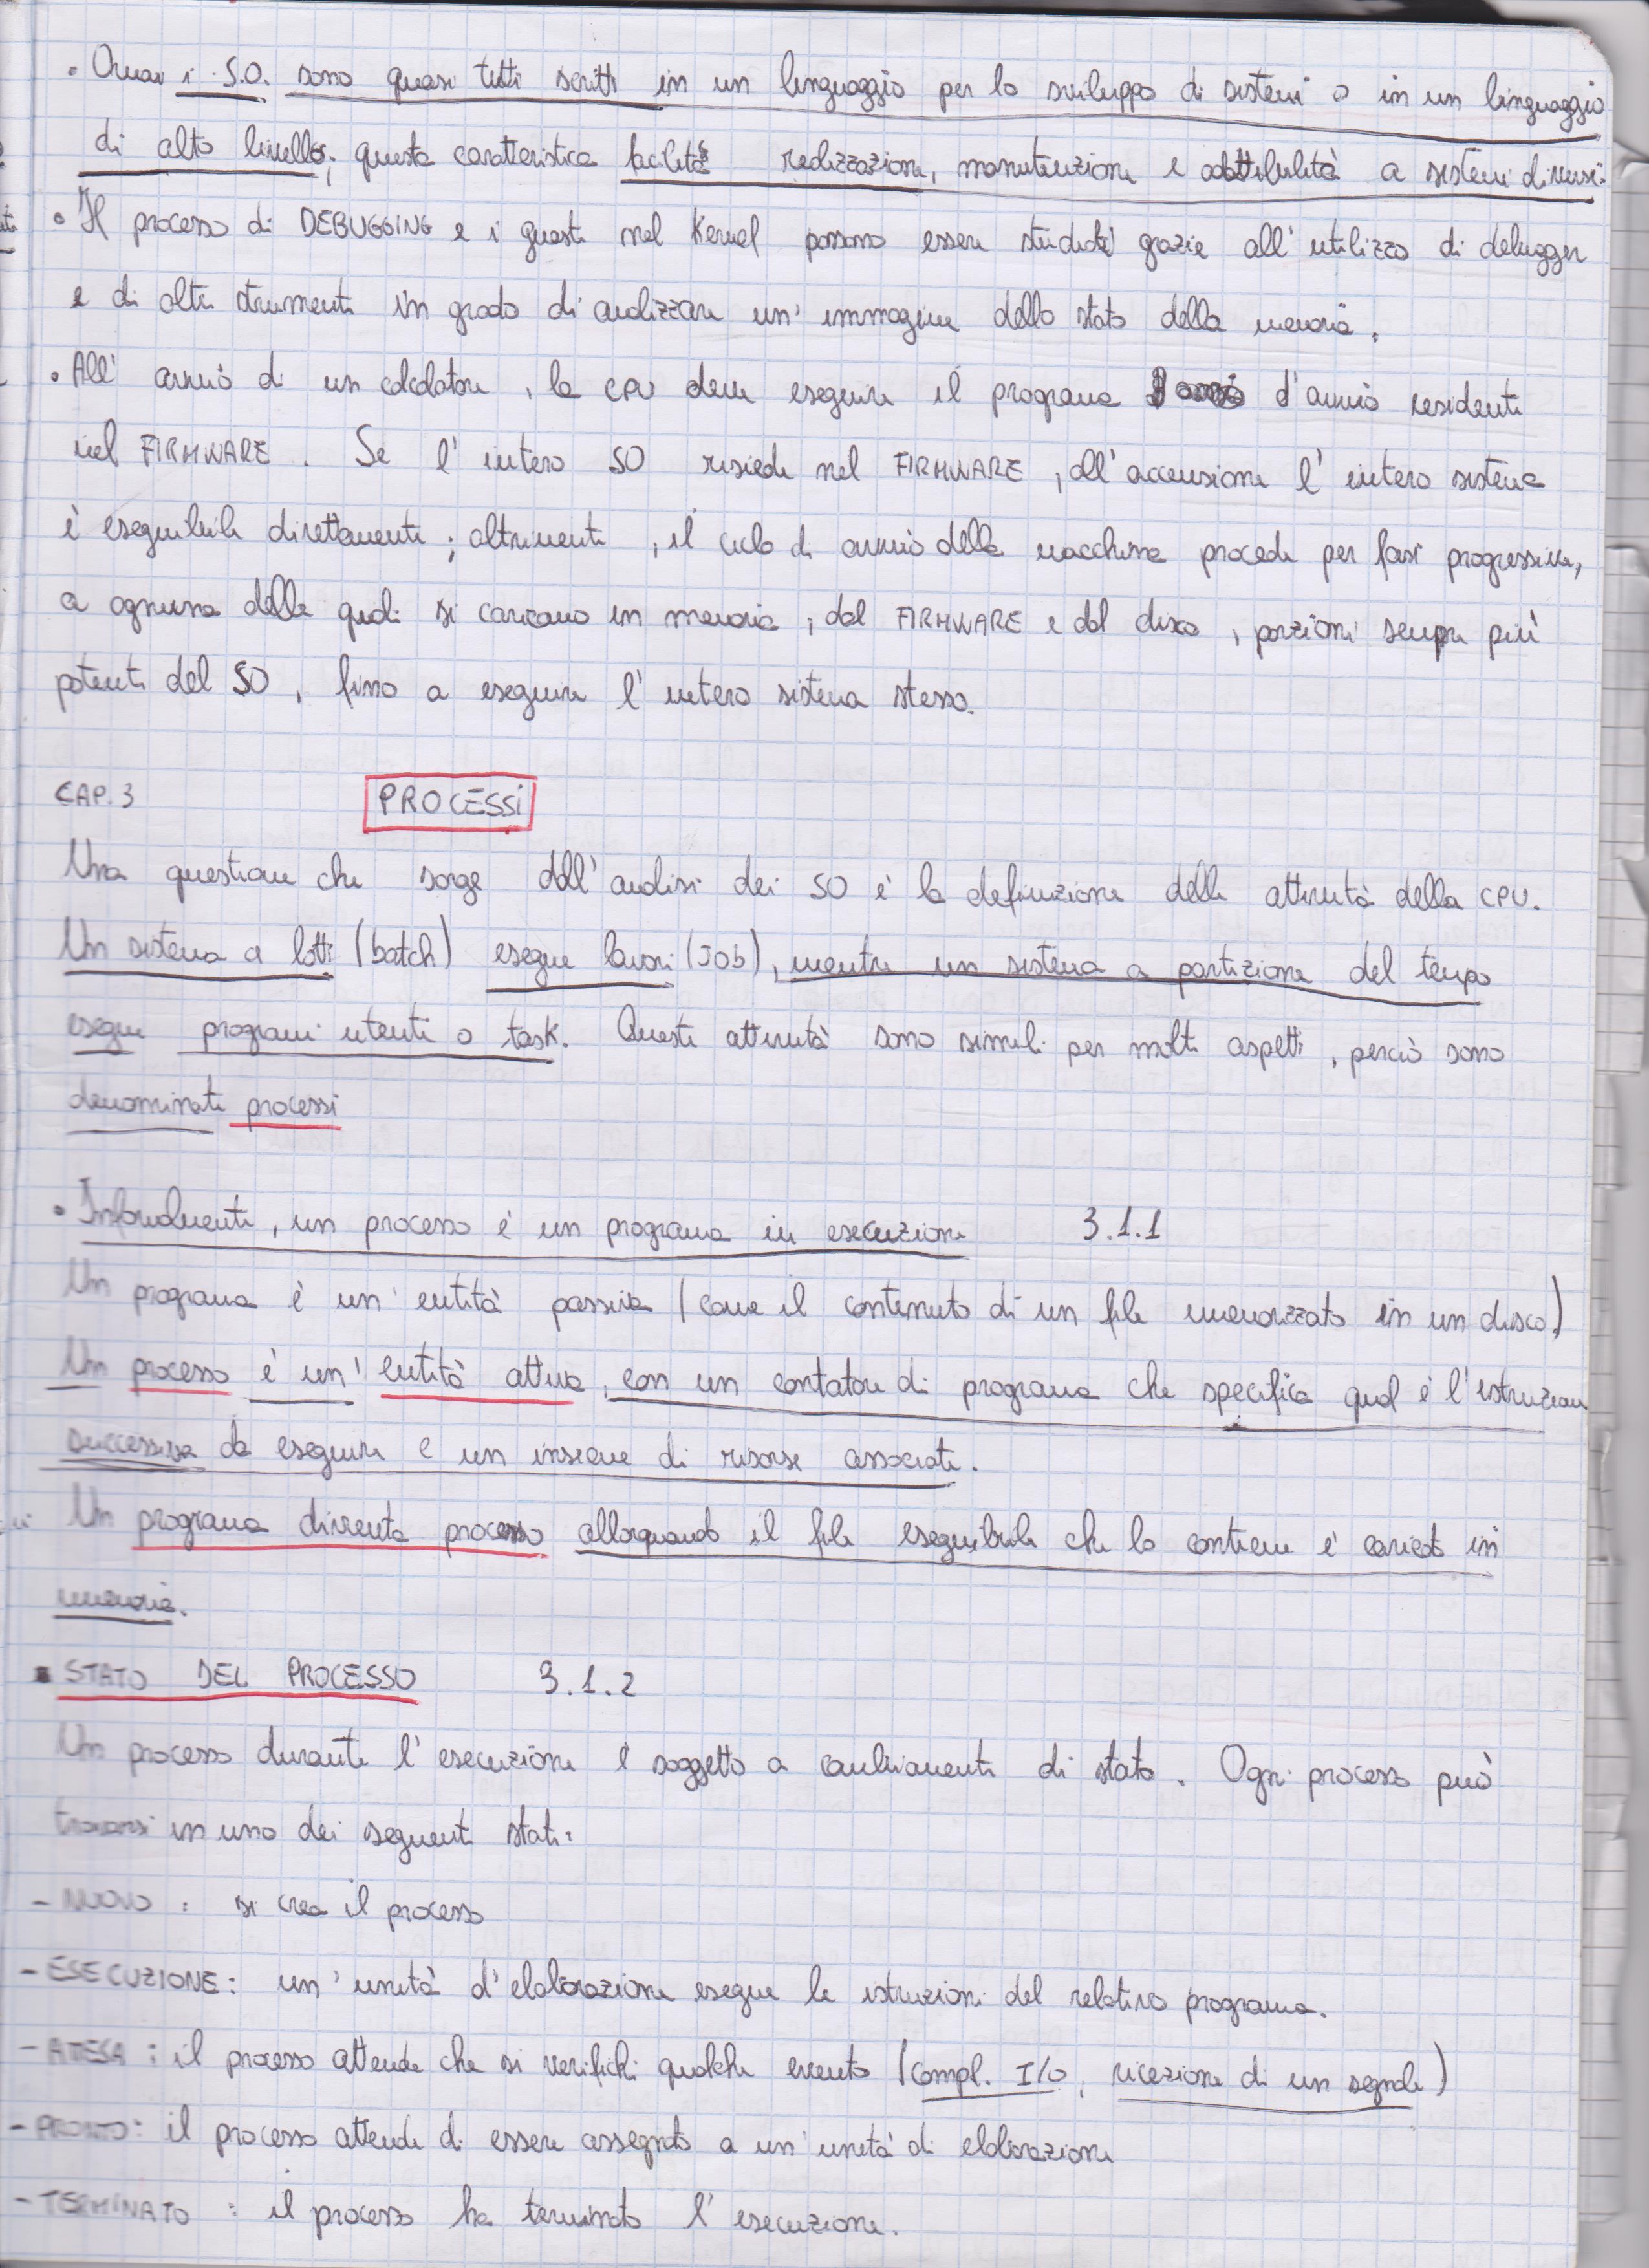 • Ormai i S.O. sono quasi tutti scritti in un linguaggio per lo sviluppo di sistemi o in un linguaggio
di alto livello; questa caratteristica facilita realizzazione, manutenzione e adattabilità a sistemi diversi.
• Il processo di DEBUGGING e i guasti nel Kernel possono essere studiati grazie all'utilizzo di debugger
e di altri strumenti in grado di analizzare un'immagine dello stato della memoria.
• All'avvio di un calcolatore, la CPU deve eseguire il programa d'avvio residente
nel FIRMWARE. Se l'intero SO risiede nel FIRMWARE, all'accensione l'intero sistema
è eseguibile direttamente; altrimenti, il ciclo di avvio della macchina procede per fasi progressive,
a ognuna delle quali si caricano in memoria, dal FIRMWARE e dal disco, porzioni sempre più
potenti del SO, fino a eseguire l'intero sistema stesso.
CAP. 3 PROCESSI
Una questione che sorge dall'analisi dei SO è la definizione delle attività della CPU.
Un sistema a lotti (batch) esegue lavori (Job), mentre un sistema a partizione del tempo
esegue programi utenti o task. Queste attività sono simili per molti aspetti, perciò sono
denominate processi
• Informalmente, un processo è un programa in esecuzione 3.1.1
Un programa è un'entità passiva (come il contenuto di un file memorizzato in un disco)
Un processo è un'entità attiva, con un contatore di programa che specifica qual è l'istruzione
successiva da eseguire e un insieme di risorse associate.
Un programa diventa processo allorquando il file eseguibile che lo contiene è caricato in
memoria.
▪ STATO DEL PROCESSO 3.1.2
Un processo durante l'esecuzione è soggetto a cambiamenti di stato. Ogni processo può
trovarsi in uno dei seguenti stati:
- NUOVO : si crea il processo
- ESECUZIONE: un'unità d'elaborazione esegue le istruzioni del relativo programa.
- ATTESA : il processo attende che si verifichi qualche evento (compl. I/O, ricezione di un segnale)
- PRONTO: il processo attende di essere assegnato a un'unità di elaborazione
- TERMINATO : il processo ha terminato l'esecuzione.